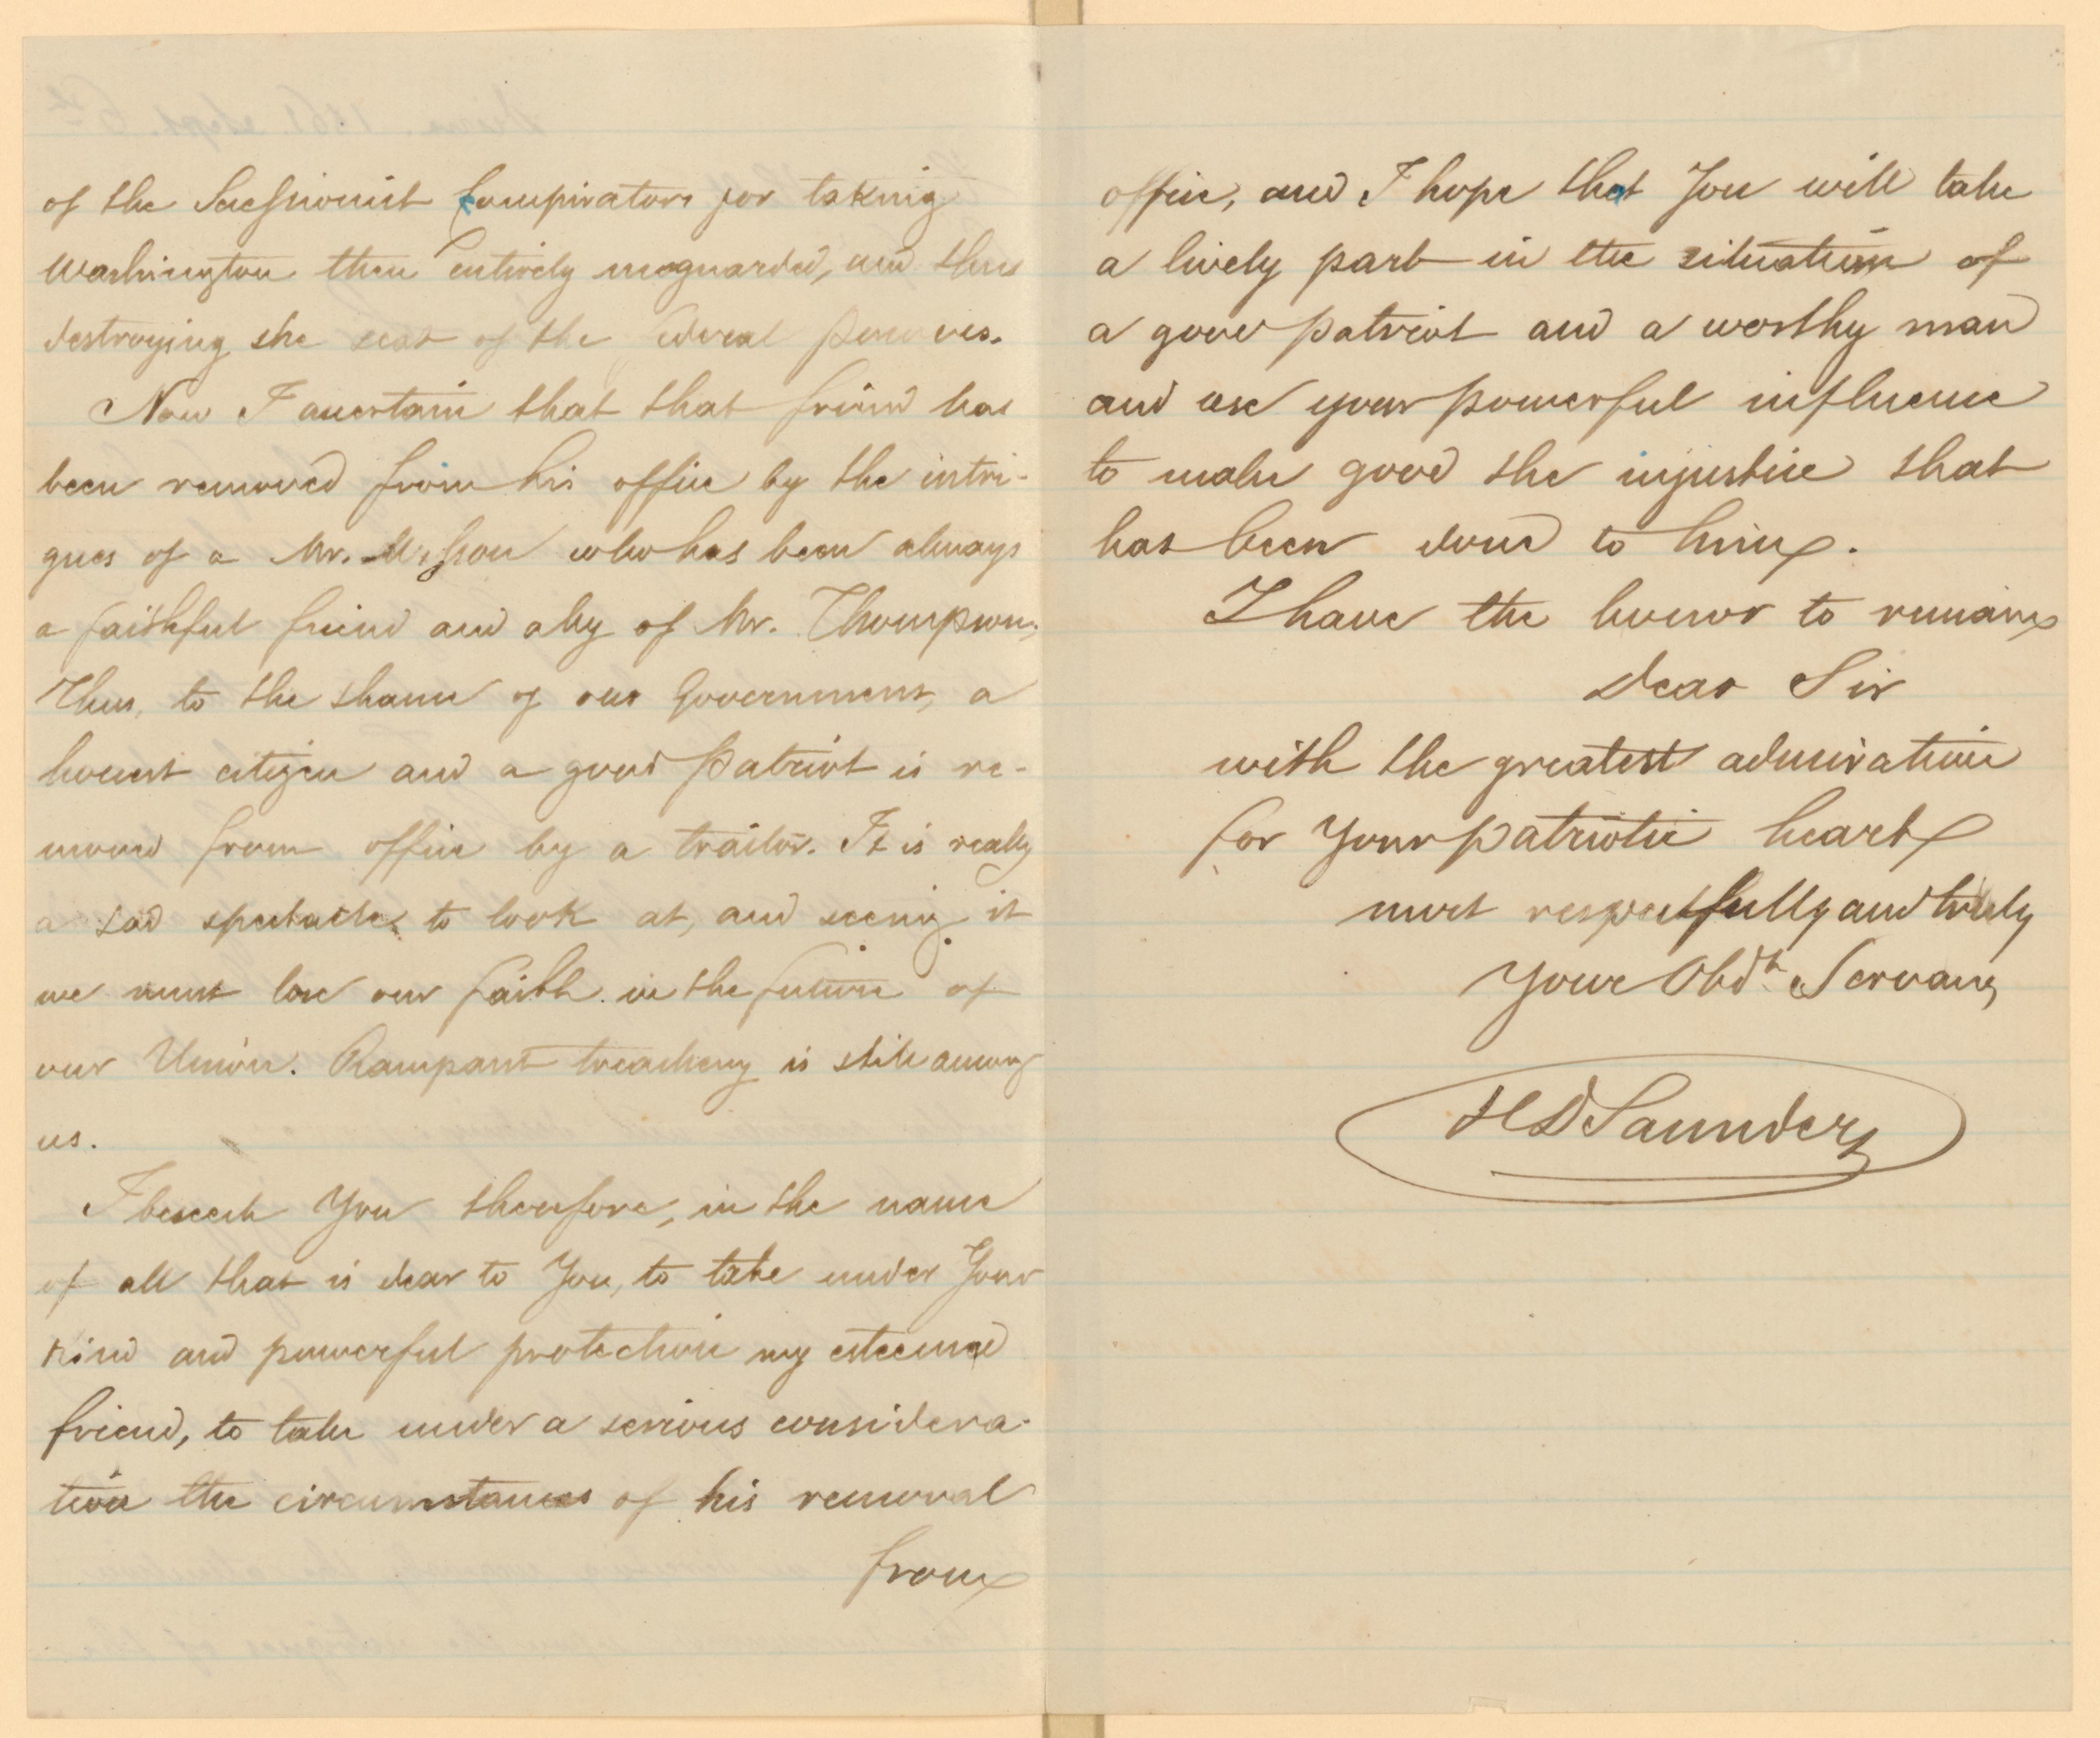 of the Secessionist Conspirators for taking
Washington then entirely unguarded, and thus
destroying the seat of the federal powers.
Now I ascertain that that friend has
been removed from his office by the intri-
gues of a Mr. who has been always
a faithful friend and ally of Mr. Thompson,
Thus, to the shame of our Government, a
honest citizen and a good Patriot is re-
moved from office by a traitor. It is really
a sad spectacle to look at, and seeing it
we must lose our faith in the future of
our Union. Rampant treachery is still among
us.
I beseech You therefore, in the name
of all that is dear to You, to take under Your
kind and powerful protection my esteemed
friend, to take under a serious considera-
tion the circumstances of his removal
from
office, and I hope that You will take
a lively part in the situation of
a good patriot and a worthy man
and use your powerful influence
to make good the injustice that
has been done to him.
I have the honor to remain
Dear Sir
with the greatest admiration
for Your patriotic heart
most respectfully and truly
Your Obdt Servant
H D Saunders